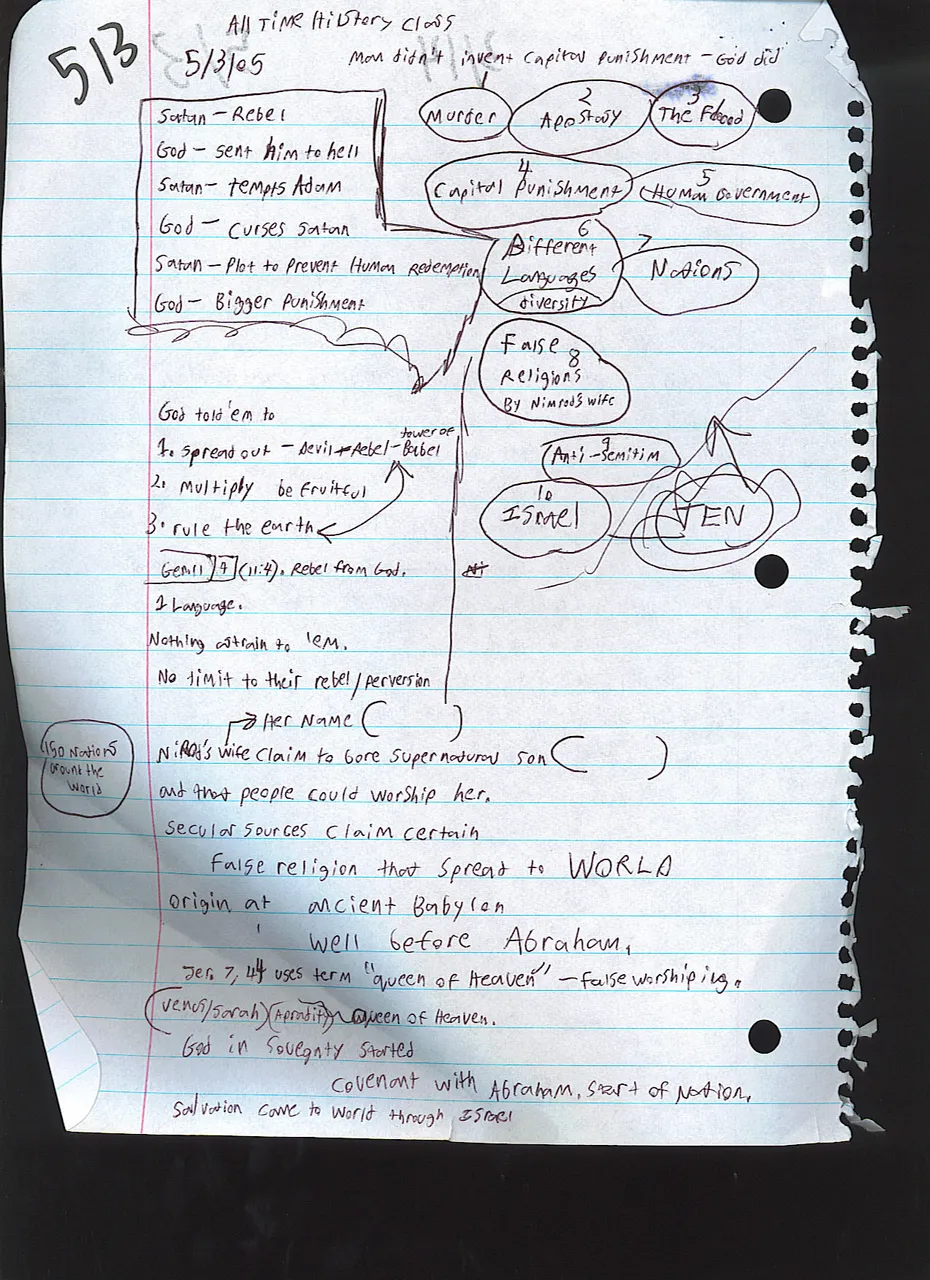 All Time History Class
5/3
5/3/05
Man didn't invent Capital Punishment - God did
Satan - Rebel
God - sent him to hell
Satan - tempts Adam
God - curses satan
Satan - Plot to Prevent Human Redemption
God - Bigger Punishment
Murder
2
Apostasy
3
The Flood
4
Capital Punishment
5
Human Government
6
Different
Languages
diversity
7
Nations
False
8
Religions
By Nimrod's wife
9
Anti-Semitim
10
ISrael
TEN
God told 'em to
1. Spread out - Devil - Rebel - tower of Babel
2. Multiply be fruitful
3. rule the earth
Gen 11 9 (11:4). Rebel from God.
1 Language.
Nothing to 'em.
No limit to their rebel/perversion
Her Name ( )
wife Claim to bore Supernatural son ( )
and that people could worship her.
150 Nations
around the
World
Secular sources claim certain
False religion that spread to WORLD
origin at ancient Babylon
well before Abraham.
Jer. 7, 44 uses term "queen of Heaven" - false worshiping.
(Venus/Sarah) queen of Heaven.
God in started
Covenant with Abraham, start of Nation.
Salvation came to world through ISrael